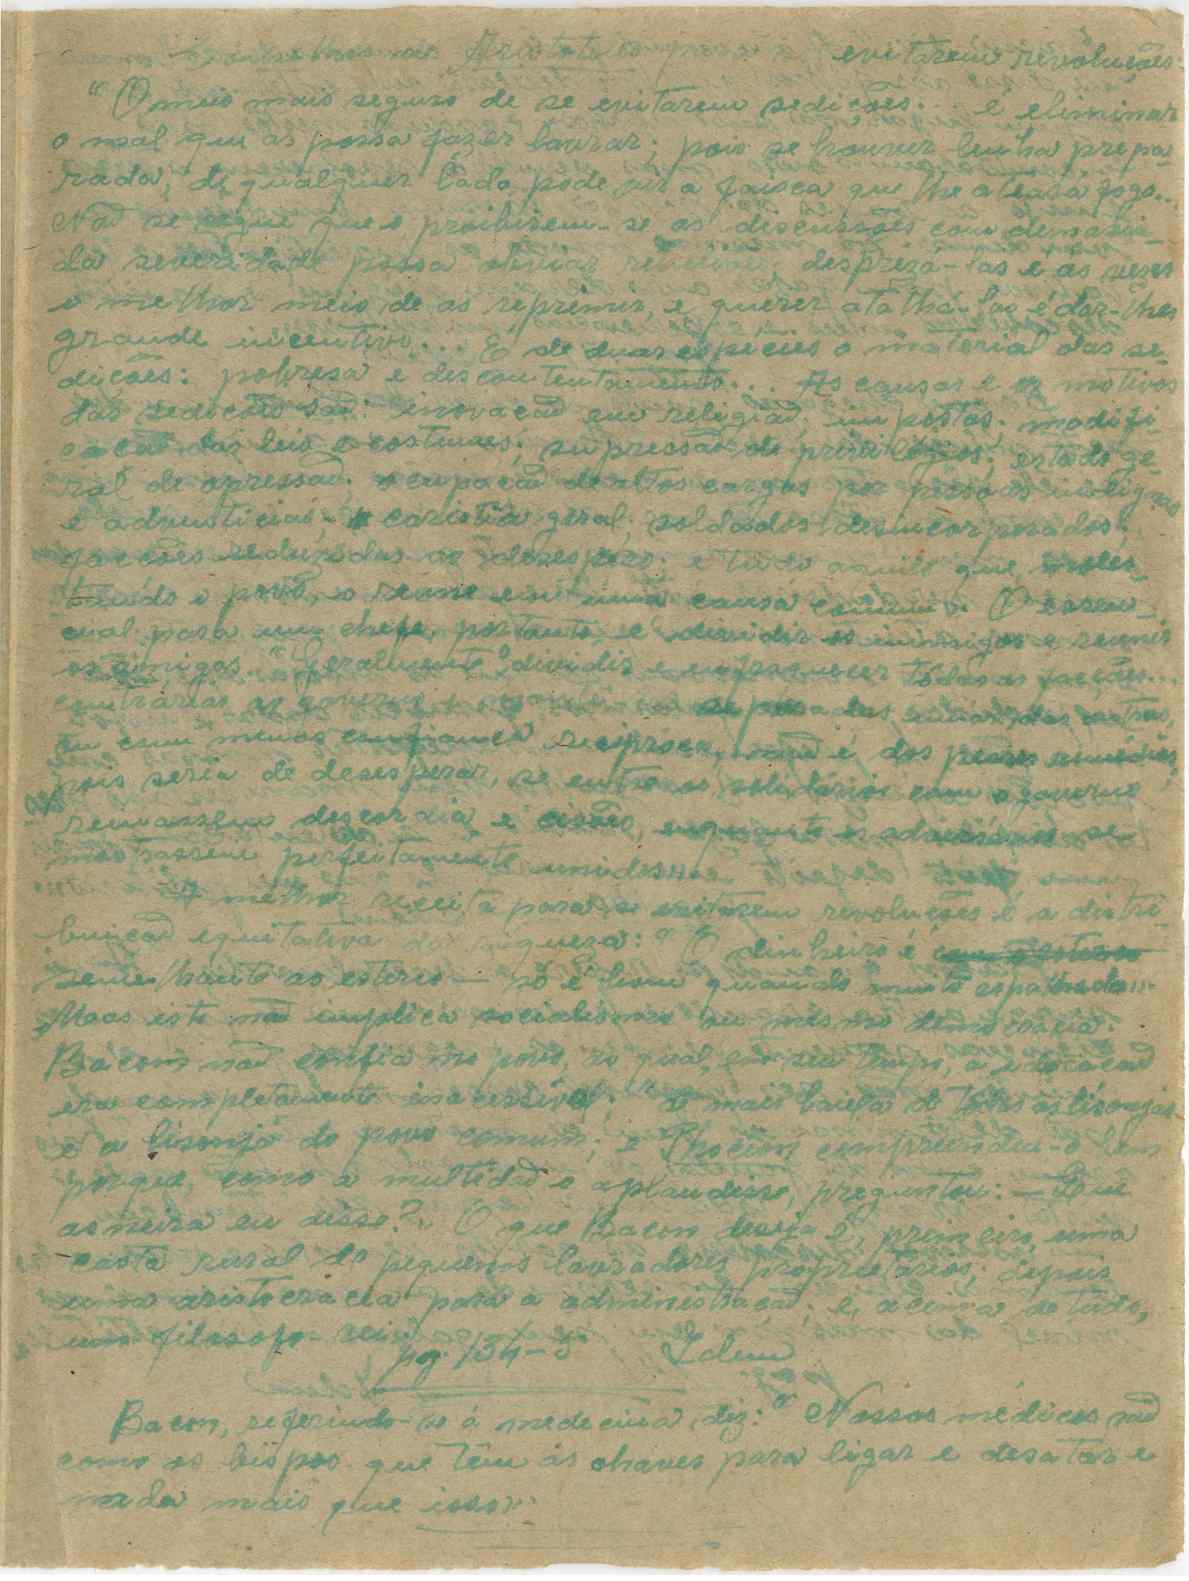 Conselhos de Aristoteles para evitarem revoluções:
"O meio mais seguro de se evitarem sedições... é eliminar
o mal que as possa fazer lavrar; pois se houver lenha prepa-
rada, de qualquer lado pode vir a faisca que lhe ateará fogo...
Não se segue que o proibirem-se as discussões com demasia-
da severidade possa obviar rebeliões; desprezá-las é ás vezes
o melhor meio de as reprimir, e querer atalhá-las é dar-lhes
grande incentivo... É de duas espécies o material das se-
dições: pobresa e descontentamento... As causas e os motivos
das sedições são: inovação em religião; impostos; modifi-
cação das leis e costumes; supressão de privilégios; estado ge-
ral de opressão; ocupação de altos cargos por pessoas indignas
e adventicias; carestia geral; soldados desincorporados;
facções reduzidas ao desespero; e tudo aquilo que, moles-
tando o povo, o reune em uma causa comum. O essen-
cial para um chefe, portanto, é dividir os inimigos e reunir
os amigos. "Geralmente, dividir e enfraquecer todas as facções...
contrárias ao governo e separadas umas das outras,
ou com menos confiança reciproca, não é dos peores remédios,
pois seria de desesperar, se entre os solidários com o governo
reinassem descordia e cisões, enquanto os adversários se
mostrassem perfeitamente unidos...
A melhor receita para se evitarem revoluções é a distri-
buição equitativa da riqueza: "O dinheiro é
semelhante ao esterco — só é bom quando muito espalhado"...
Mas isto não implica socialismo ou mesmo democracia.
Bacon não confia no povo, ao qual, em seu tempo, a educação
era completamente inacessível; "a mais baixa de todas as lisonjas
é a lisonja do povo comum; e Phocion compreendeu-o bem
porque, como a multidão o aplaudisse, preguntou: — Que
asneira eu disse?" O que Bacon deseja é, primeiro, uma
casta rural de pequenos lavradores proprietários; depois
uma aristocracia para a administração; e, acima de tudo,
um filosofo-rei."
pg. 134-5 Idem
Bacon, referindo-se á medecina, diz: "Nossos médicos são
como os bispos que têm as chaves para ligar e desatar e
nada mais que isso".